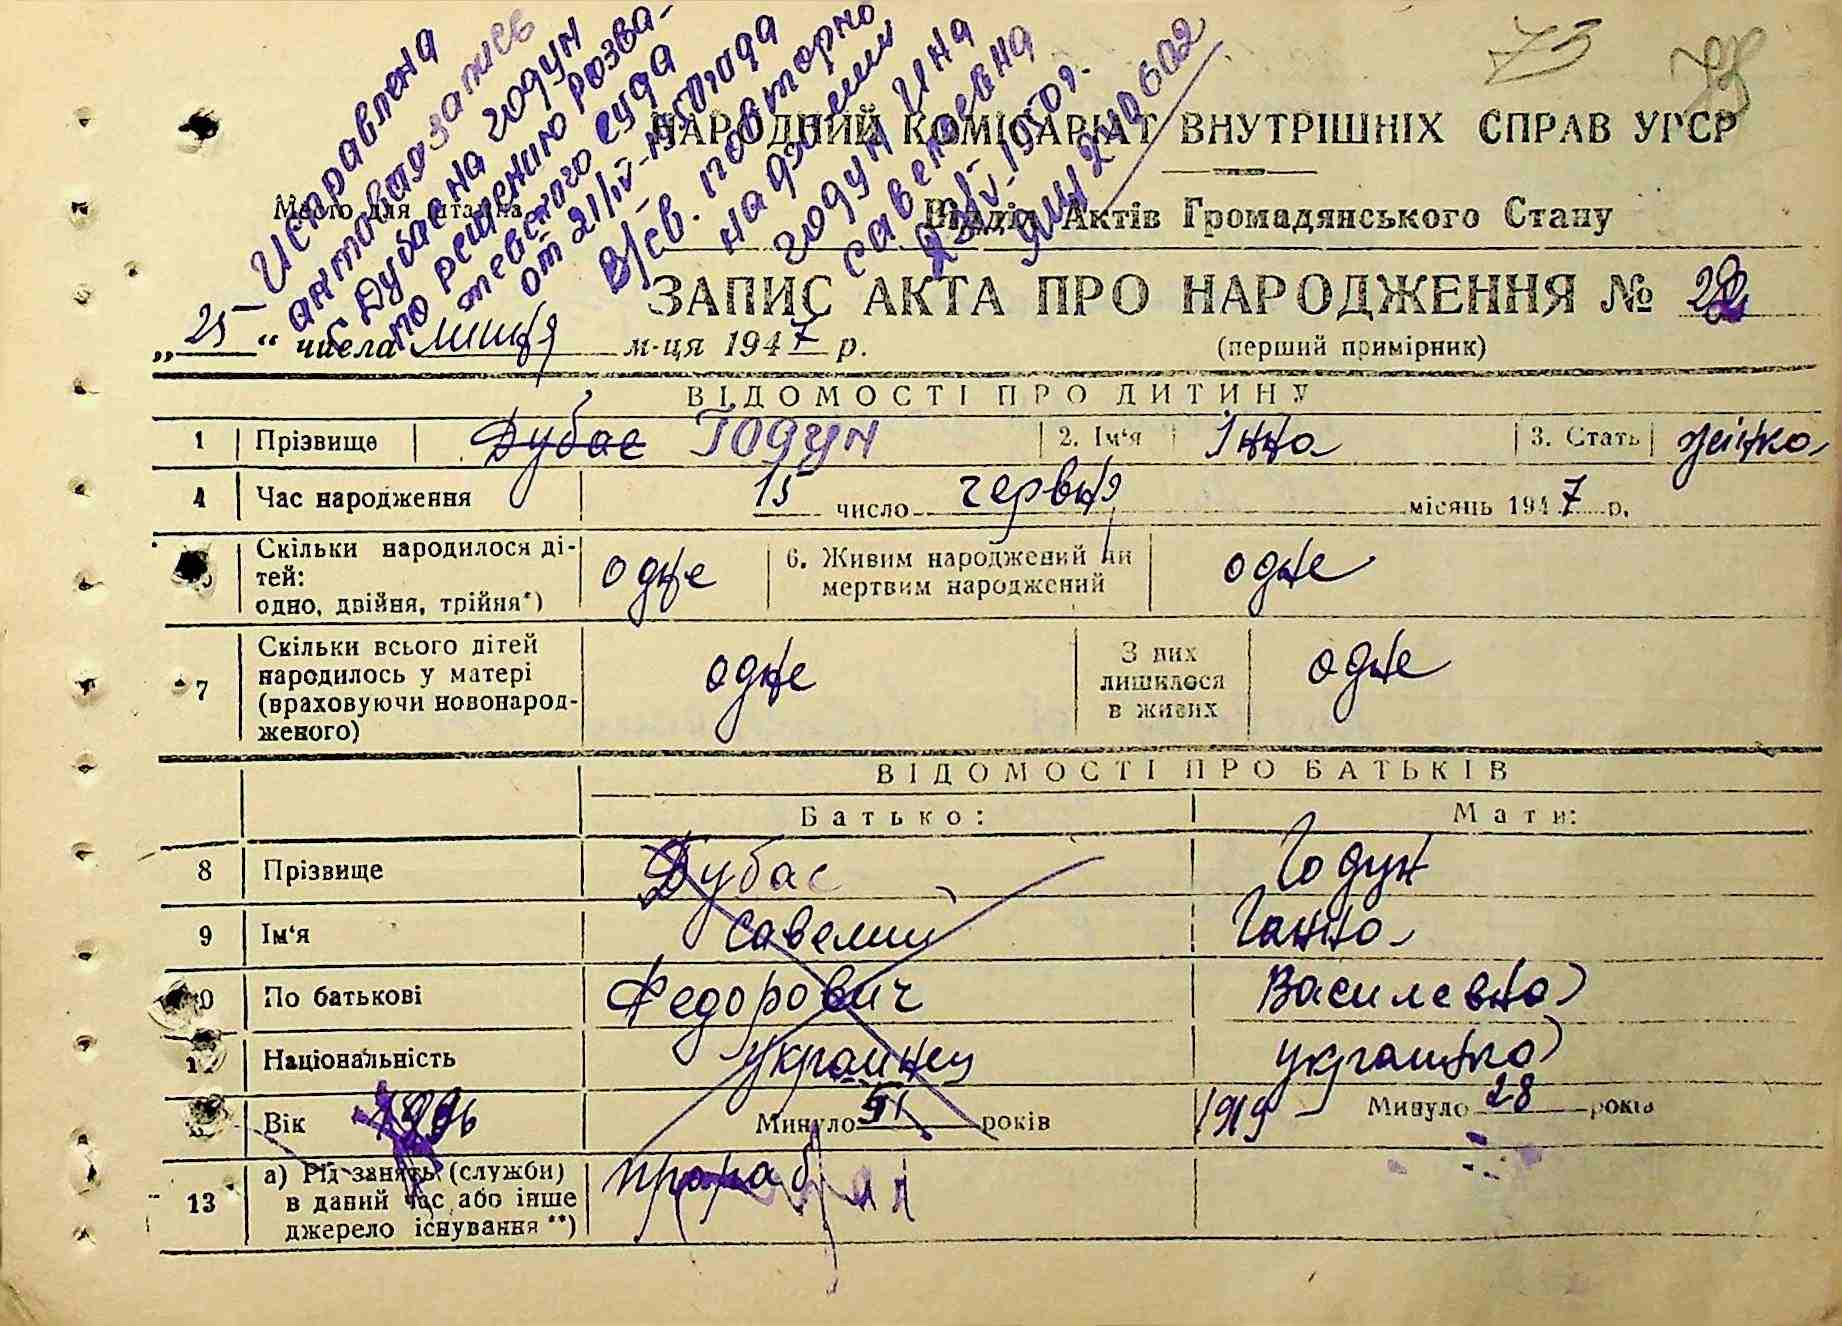 Исправлена
актовая запись
с Дубас на Годун
по решению Розва-
жевского суда
от 21/IV-1950 года
В/св. повторно
надзении
Годун Инна
Савельевна
73
НАРОДНИЙ КОМІСАРІАТ ВНУТРІШНІХ СПРАВ УРСР
Место для штампа
Відділ Актів Громадянського Стану
ЗАПИС АКТА ПРО НАРОДЖЕННЯ №
„25“ числа липня м-ця 1947 р. (перший примірник)
ВІДОМОСТІ ПРО ДИТИНУ
1 Прізвище Дубас Годун 2. Ім'я Інна 3. Стать жінко
4 Час народження 15 число червня місяць 1947 р.
Скільки народилося ді-
тей:
одно, двійня, трійня*) одне 6. Живим народжений чи
мертвим народжений одне
7 Скільки всього дітей
народилось у матері
(враховуючи новонарод-
женого) одне З них
лишилося
в живих одне
ВІДОМОСТІ ПРО БАТЬКІВ
Батько: Мати:
8 Прізвище Дубас Годун
9 Ім'я Савелий Ганна
10 По батькові Федорович Василевна
Національність украинец украинка
Вік 1896 Минуло 51 років 1919 Минуло 28 років
13 а) Рід занять (служби)
в даний час або інше
джерело існування **) прораб